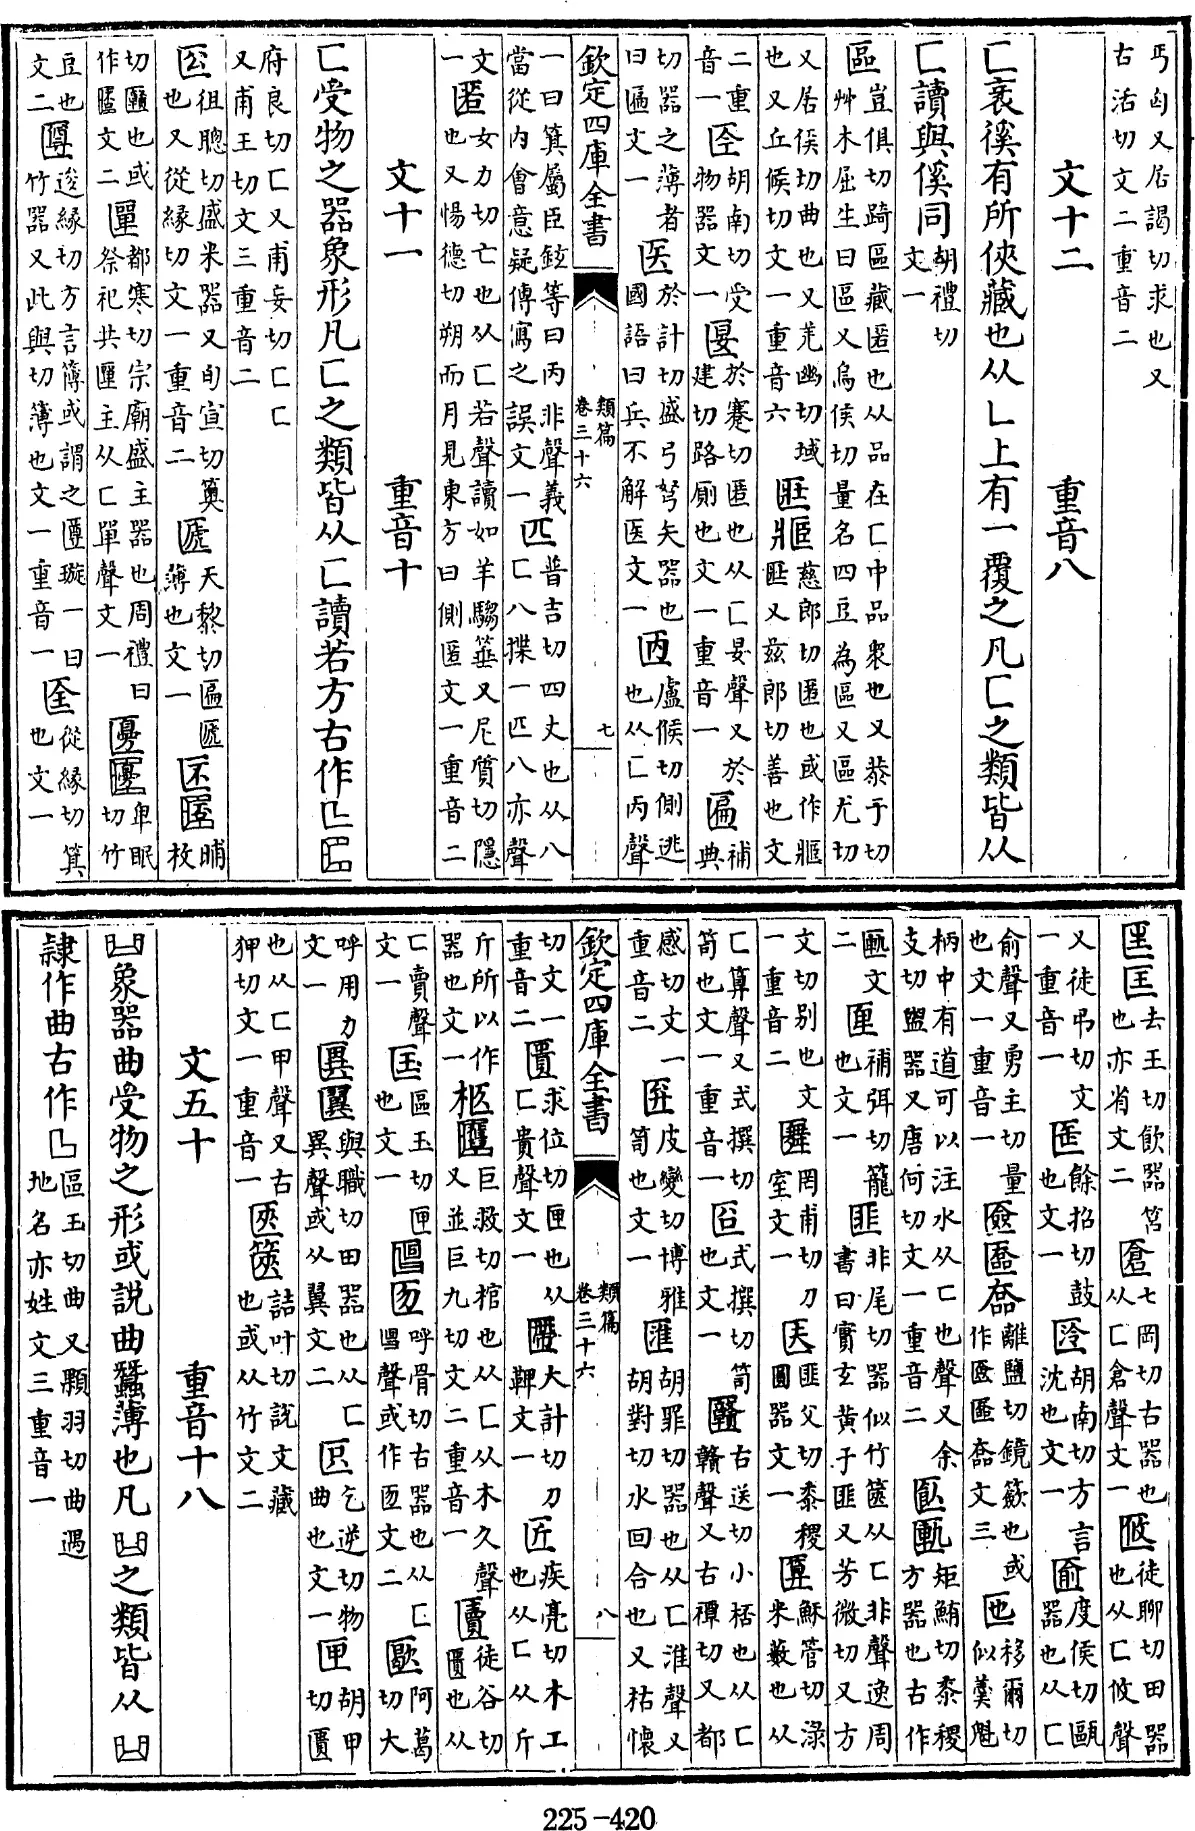 丐匃又居謁切求也又
右活切文二重音二
文十二　重音八
匸衺徯有所俠藏也从乚上有一覆之凡匸之類皆从
匸讀與傒同胡禮切
文一
區豈俱切踦區藏匿也从品在匸中品衆也又菾于切
艸木屈生曰區又烏侯切量名四豆為區又區尤切
又居侯切曲也又羌幽切域
也又丘候切文一重音六
匨慈郎切匿也或作
匨又兹郎切善也文
二重
音一
胡南切受
物器文一
匽於蹇切匿也从匸妟聲又於
建切路廁也文一重音一
匾補
典
切器之薄者
曰匾文一
医於計切盛弓弩矢器也
國語曰兵不解医文一
㔷盧候切側逃
也从匸丙聲
欽定四庫全書　類篇　卷三十六　七
一曰箕屬臣鉉等曰丙非聲義
當從內會意疑傳寫之誤文一
匹普吉切四丈也从八
匸八揲一匹八亦聲
文
一
匿女力切亡也从匸若聲讀如羊騶箠又尼質切隱
也又惕德切朔而月見東方曰側匿文一重音二
文十一　重音十
匚受物之器象形凡匚之類皆从匚讀若方右作
府良切匚又甫妄切匚匚
又甫王切文三重音二
徂聰切盛米器又旬宣切
也又從緣切文一重音二
天黎切匾
薄也文一
晡
枚
切也或
作文二
匰都寒切宗廟盛主器也周禮曰
祭祀共匰主从匚單聲文一
卑眠
切竹
豆也
文二
逡緣切方言簿或謂之璇一曰
竹器又此與切簿也文一重音一
從緣切箕
也文一
匩去王切飲器筥
也亦省文二
匼七岡切古器也
从匚倉聲文一
匘徒聊切田器
也从匚攸聲
又徒弔切文
一重音一
餘招切鼓
也文一
胡南切方言
沈也文一
匬度侯切甌
器也从匚
俞聲又勇主切量
也文一重音一
匳離鹽切鏡籢也或
作匳奩文三
匜移爾切
似羹魁
柄中有道可以注水从匚也聲又余
支切盥器又唐何切文一重音二
矩鮪切黍稷
方器也古作
文
二
補弭切籠
也文一
匪非尾切器似竹篋从匚非聲逸周
書曰實玄黄于匪又芳微切又方
文切别也文
一重音二
罔甫切刀
室文一
匪父切黍稷
圓器文一
匴穌管切淥
米籔也从
匚算聲又式撰切
笥也文一重音一
式撰切笥
也文一
右送切小桮也从匚
贛聲又右禫切又都
感切文一
重音二
皮變切博雅
笥也文一
匯胡罪切器也从匚淮聲又
胡對切水回合也又枯懷
欽定四庫全書　類篇　卷三十六　八
切文一
重音二
匱求位切匣也从
匚貴聲文一
大計切刀
鞞文一
匠疾亮切木工
也从匚从斤
斤所以作
器也文一
柩巨救切棺也从匚从木久聲
又並巨九切文二重音一
匵徒谷切
匱也从
匚賣聲
文一
区玉切匣
也文一
呼骨切古器也从匚
聲或作文二
阿葛
切大
呼用力
文一
與職切田器也从匚
異聲或从翼文二
乞逆切物
曲也文一
匣胡甲
切匱
也从匚甲聲又古
狎切文一重音一
匧篋詰叶切説文藏
也或从竹文二
文五十　重音十八
象器曲受物之形或説曲蠶薄也凡之類皆从
隸作曲古作區玉切曲又顆羽切曲遇
地名亦姓文三重音一
225-420